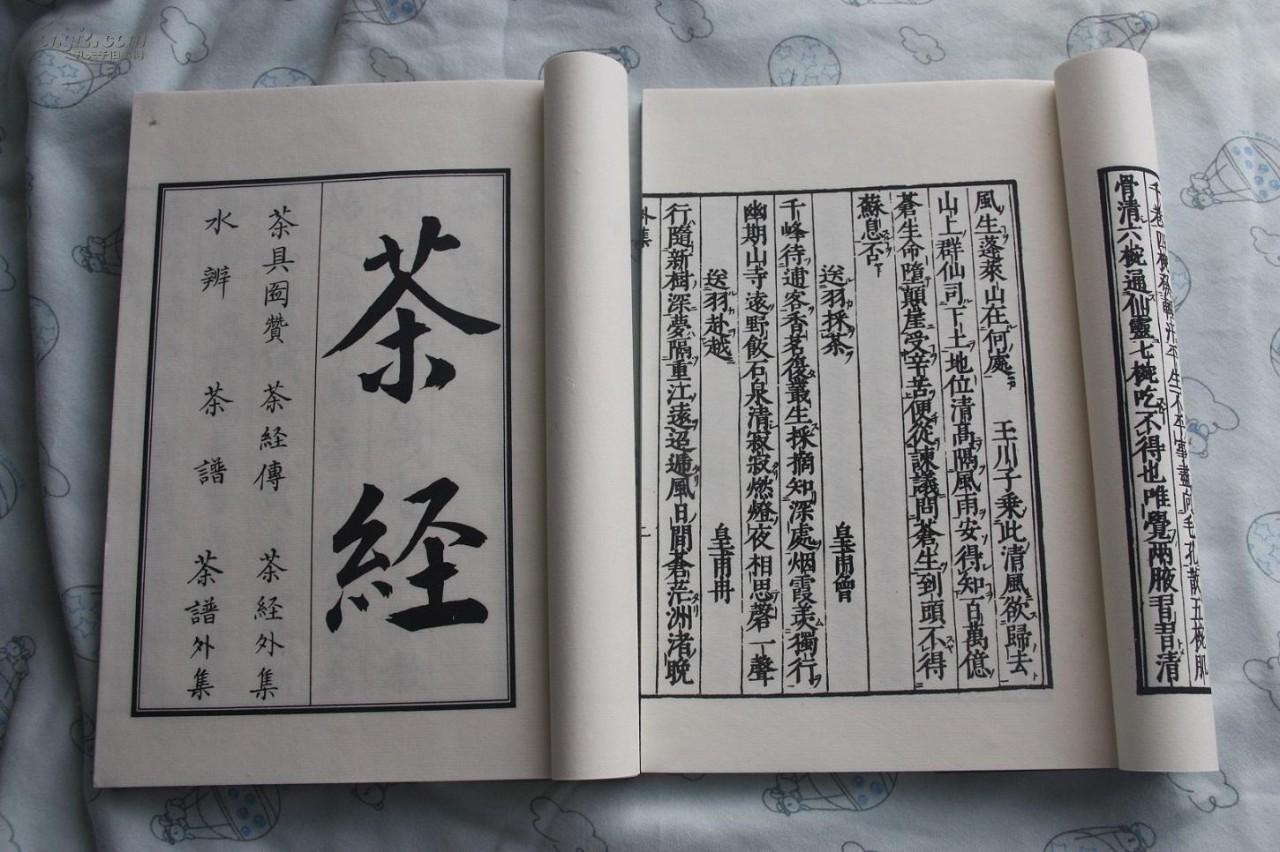 茶経
茶具圖贊 茶経傳 茶経外集
水辨 茶譜 茶譜外集
平生不平事盡向毛孔散五椀肌
骨清六椀通仙靈七椀吃不得也唯覺兩腋習習清
風生蓬萊山在何處 玉川子乘此清風欲歸去
山上群仙司下土地位清高隔風雨安得知百萬億
蒼生命墮顛崖受辛苦便從諫議問蒼生到頭不得
蘇息否
送羽採茶 皇甫曾
千峰待逋客香茗復叢生採摘知深處烟霞羨獨行
幽期山寺遠野飯石泉清寂寂燃燈夜相思磬一聲
送羽赴越 皇甫冉
行隨新樹深夢隔重江遠迢遞風日間蒼茫洲渚晚
外集